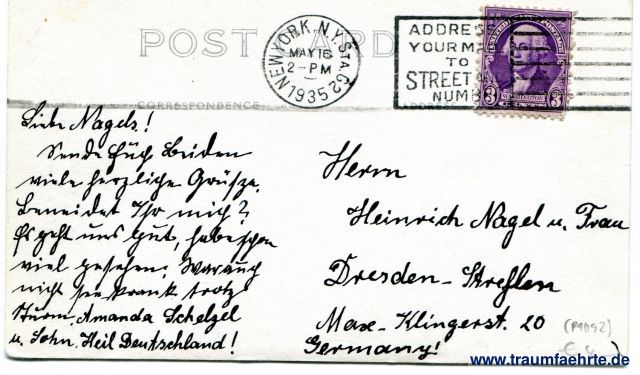 POST CARD
NEW YORK, N.Y. STA. G
MAY 16
2-PM
1935
ADDRESS
YOUR MAIL
TO
STREET
NUMB
3
WASHINGTON
3
CORRESPONDENCE
ADDRESS
Liebe Nagels!
Sende Euch beiden
viele herzliche Grüsze.
Beneidet Ihr mich?
Es geht uns gut, habe schon
viel gesehen. War auch
nicht seekrank trotz
Sturm. Amanda Schelzel
u. Sohn. Heil Deutschland!
Herrn
Heinrich Nagel u. Frau
Dresden-Strehlen
Max-Klingerst. 20
Germany!
www.traumfaehrte.de